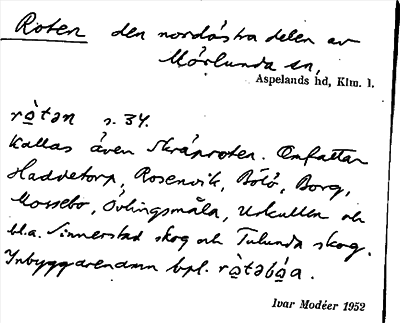 Roten den nordöstra delen av
Mörlunda sn,
Aspelands hd, Klm. l.
rò̱tən s. 34.
Kallas även Skräproten. Omfattar
Haddetorp, Rosenvik, Bölö, Borg,
Mossebo, Övlingsmåla, Uskullen och
bl.a. Sinnerstad skog och Tulunda skog.
Inbyggarenamn bpl. rò̱təbo̱a.
Ivar Modéer 1952